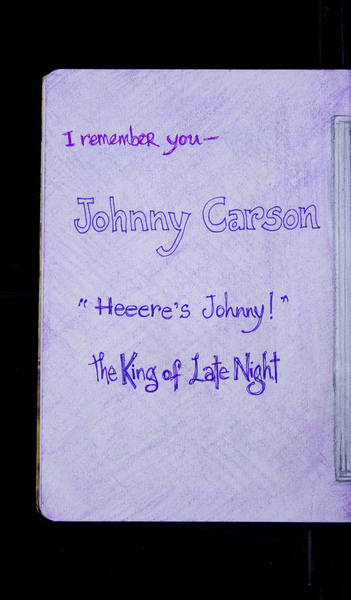 I remember you—
Johnny Carson
"Heeere's Johnny!"
the King of Late Night